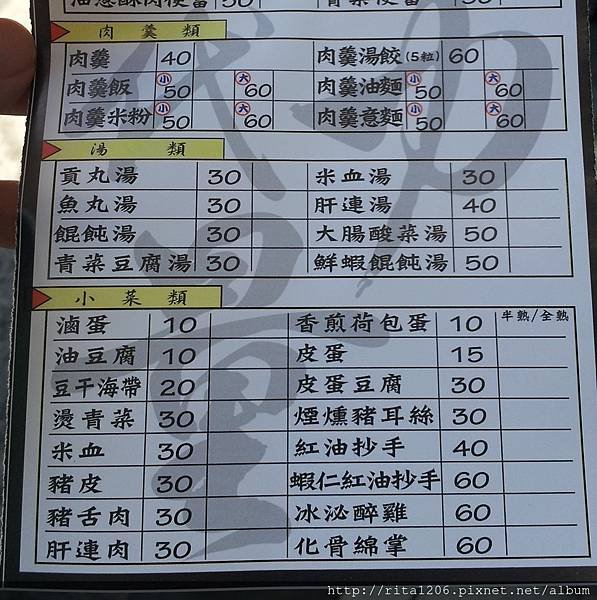 肉羹類
肉羹 40 肉羹湯餃(5粒) 60
肉羹飯 小 50 大 60 肉羹油麵 小 50 大 60
肉羹米粉 小 50 大 60 肉羹意麵 小 50 大 60
湯類
貢丸湯 30 米血湯 30
魚丸湯 30 肝連湯 40
餛飩湯 30 大腸酸菜湯 50
青菜豆腐湯 30 鮮蝦餛飩湯 50
小菜類
滷蛋 10 香煎荷包蛋 10 半熟/全熟
油豆腐 10 皮蛋 15
豆干海帶 20 皮蛋豆腐 30
燙青菜 30 煙燻豬耳絲 30
米血 30 紅油抄手 40
豬皮 30 蝦仁紅油抄手 60
豬舌肉 30 冰泌醉雞 60
肝連肉 30 化骨綿掌 60
http://rita1206.pixnet.net/album